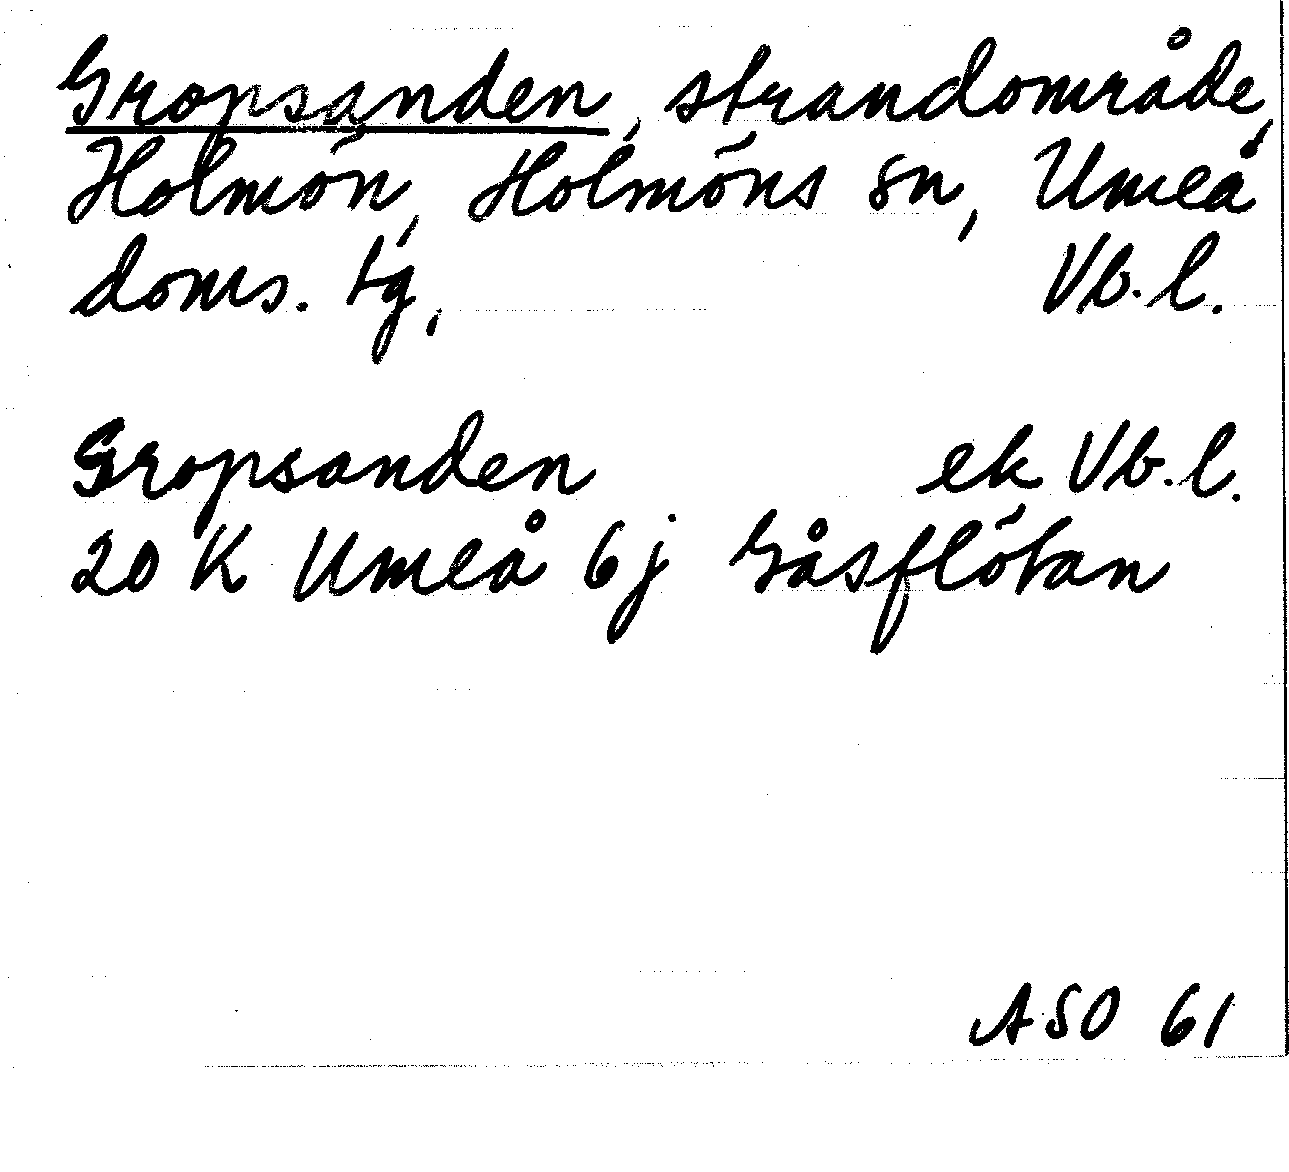 Gropsanden, strandområde,
Holmön, Holmöns sn, Umeå
doms. tg, Vb. l.
Gropsanden ek Vb. l.
20 K Umeå 6j Gåsflötan
ASO 61